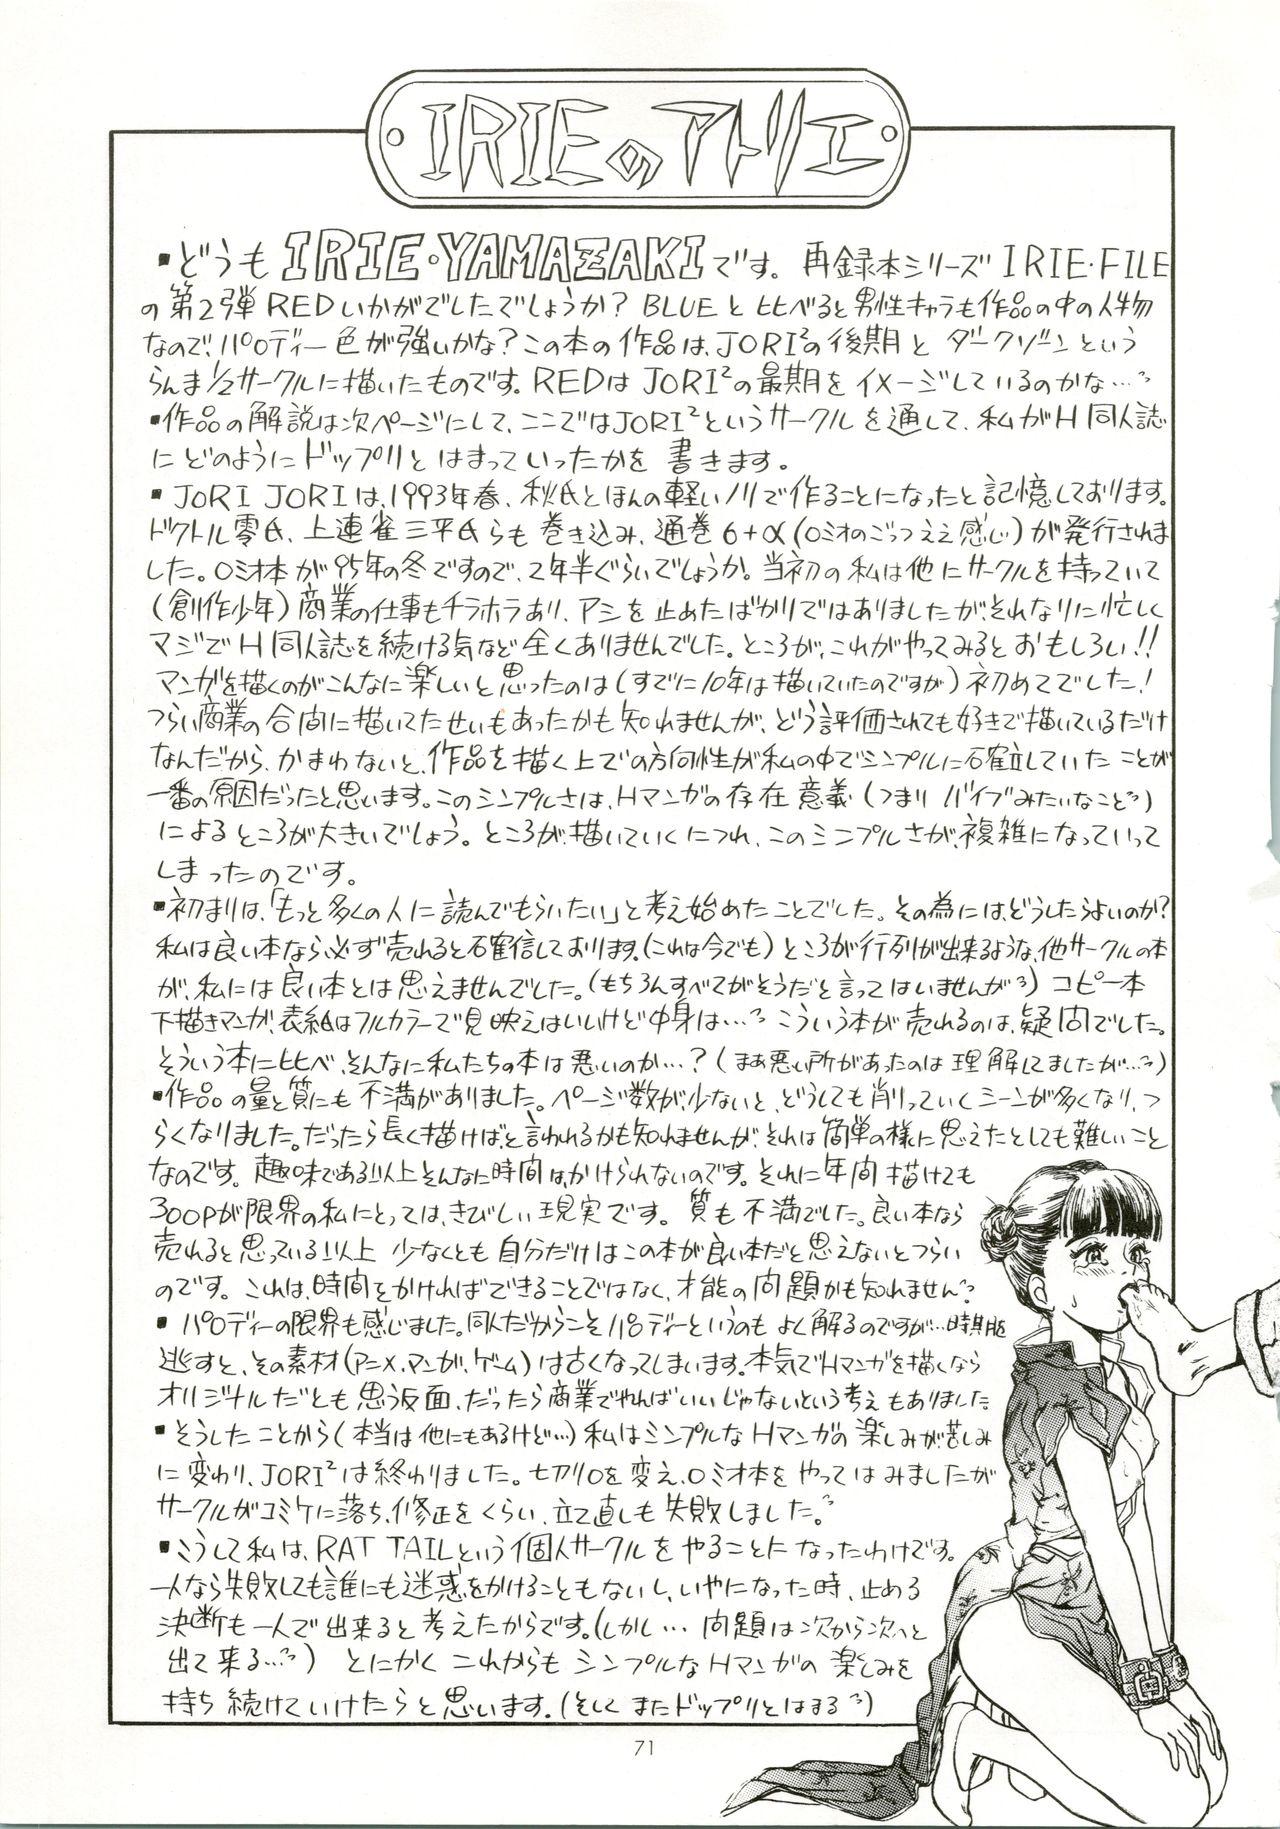 IRIEのアトリエ
▪どうもIRIE・YAMAZAKIです。再録本シリーズIRIE・FILE
の第2弾REDいかがでしたでしょうか?BLUEと比べると男性キャラも作品の中の人物
なので、パロディー色が強いかな?この本の作品は、JORI²の後期とダークゾーンという
らんま1/2サークルに描いたものです。REDはJORI²の最期をイメージしているのかな…
▪作品の解説は次ページにして、ここではJORI²というサークルを通して、私がH同人誌
にどのようにドップリとはまっていったかを書きます。
▪JORI JORIは、1993年春、秋氏とほんの軽いノリで作ることになったと記憶しております。
ドクトル零氏、上連雀三平氏らも巻き込み、通巻6+α(ロミオのごっつええ感じ)が発行されま
した。ロミオ本が95年の冬ですので、2年半ぐらいでしょうか。当初の私は他にサークルを持っていて
(創作少年)商業の仕事もチラホラあり、アシを止めたばかりではありましたが、それなりに忙しく
マジでH同人誌を続ける気など全くありませんでした。ところが、これがやってみるとおもしろい!!
マンガを描くのがこんなに楽しいと思ったのは(すでに10年は描いていたのですが)初めてでした!
つらい商業の合間に描いてたせいもあったかも知れませんが、どう評価されても好きで描いているだけ
なんだから、かまわないと、作品を描く上での方向性が私の中でシンプルに確立していたことが
一番の原因だったと思います。このシンプルさは、Hマンガの存在意義(つまりバイブみたいなこと)
によるところが大きいでしょう。ところが、描いていくにつれ、このシンプルさが、複雑になっていって
しまったのです。
▪初まりは、「もっと多くの人に読んでもらいたい」と考え始めたことでした。その為には、どうしたらよいのか?
私は良い本なら必ず売れると確信しております。(これは今でも)ところが行列が出来るような、他サークルの本
が、私には良い本とは思えませんでした。(もちろんすべてがそうだと言ってはいませんが)コピー本
下描きマンガ、表紙はフルカラーで見映えはいいけど中身は…こういう本が売れるのは、疑問でした。
そういう本に比べ、そんなに私たちの本は悪いのか…?(まあ悪い所があったのは理解してましたが…)
▪作品の量と質にも不満がありました。ページ数が少ないと、どうしても削っていくシーンが多くなり、つ
らくなりました。だったら長く描けば、と言われるかも知れませんが、それは簡単の様に思えたとしても難しいこと
なのです。趣味である以上そんなに時間はかけられないのです。それに年間描けても
300Pが限界の私にとっては、きびしい現実です。質も不満でした。良い本なら
売れると思っている以上少なくとも自分だけはこの本が良い本だと思えないとつらい
のです。これは、時間をかければできることではなく、才能の問題かも知れません
▪パロディーの限界も感じました。同人だからこそパロディーというのもよく解るのですが…時期を
逃すと、その素材(アニメ、マンガ、ゲーム)は古くなってしまいます。本気でHマンガを描くなら
オリジナルだとも思う反面、だったら商業でやればいいじゃないという考えもありました
▪そうしたことから(本当は他にもあるけど…)私はシンプルなHマンガの楽しみが苦しみ
に変わり、JORI²は終わりました。七切り口を変え、ロミオ本をやってはみましたが
サークルがコミケに落ち、修正をくらい、立て直しも失敗しました。
▪こうして私は、RAT TAILという個人サークルをやることになったわけです。
一人なら失敗しても誰にも迷惑をかけることもないし、いやになった時、止める
決断も一人で出来ると考えたからです。(しかし…問題は次から次へと
出て来る…)とにかくこれからもシンプルなHマンガの楽しみを
持ち続けていけたらと思います。(そしてまたドップリとはまる)
71